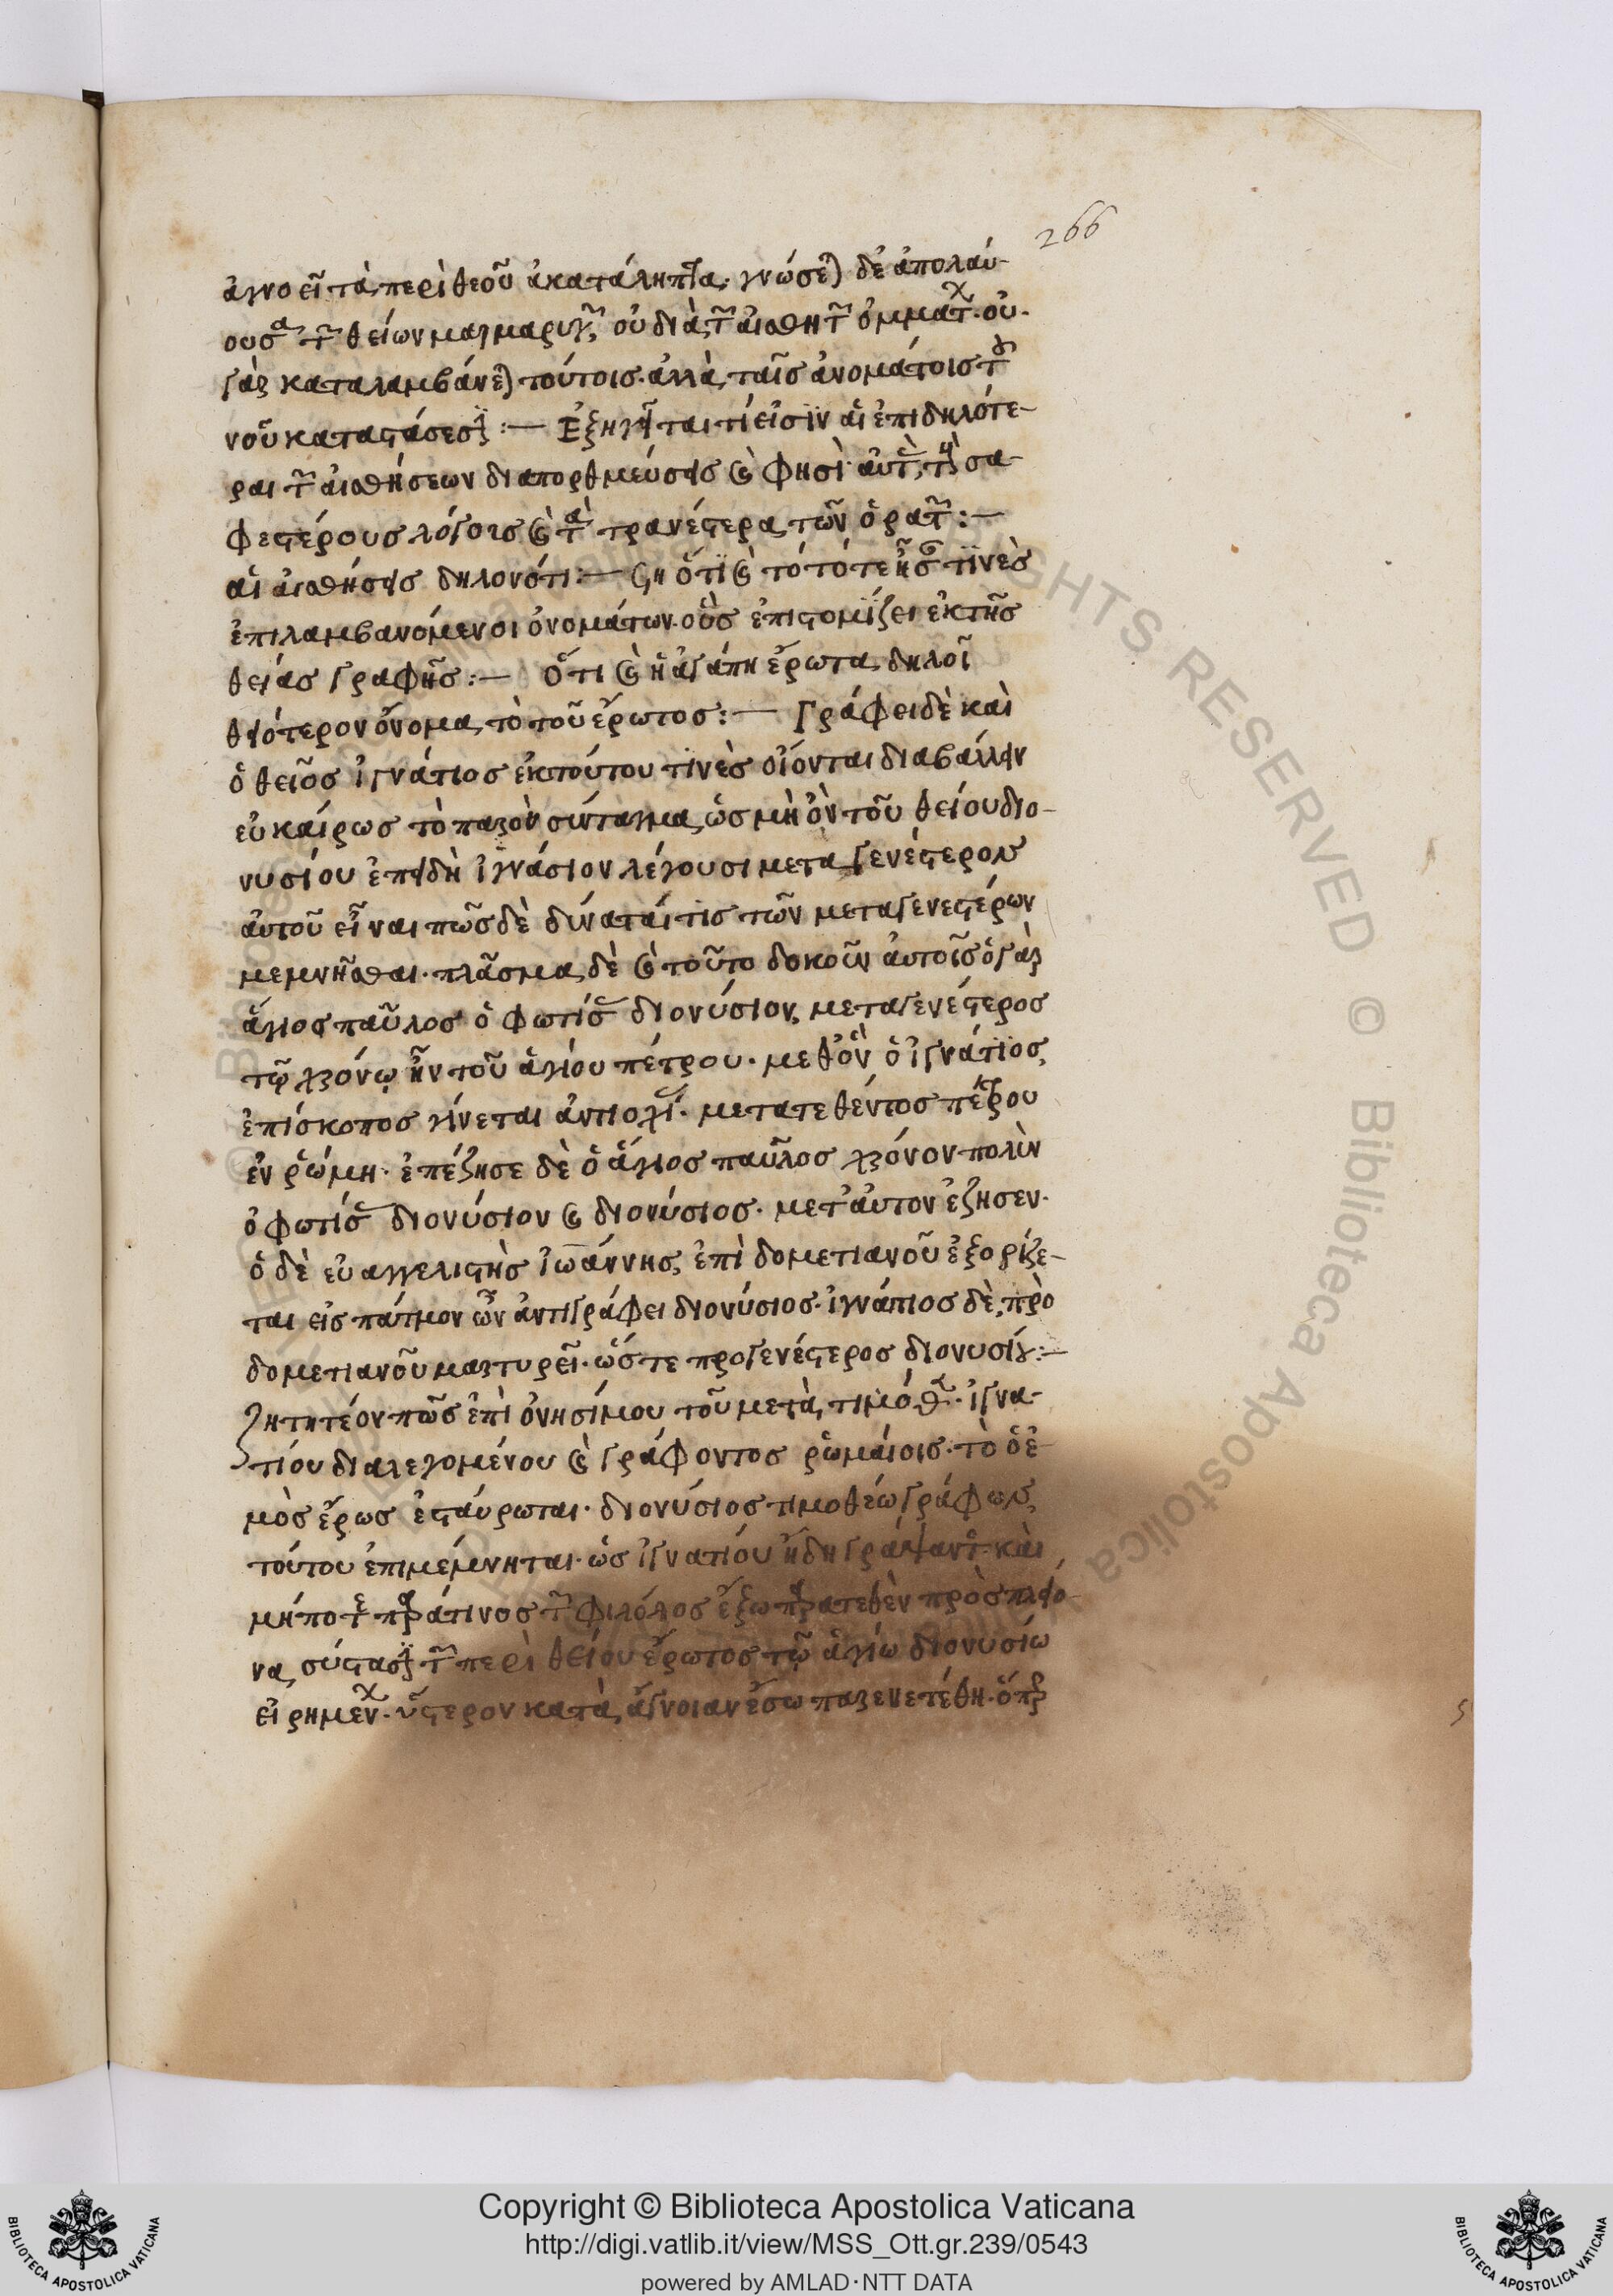 266
ἀγνοεῖ τὰ περὶ θεοῦ ἀκατάληπτα· γνώσε δὲ ἀπολαύ-
ουσα τῶν θείων μαρμαρυγῶν, οὐ διὰ τῶν αἰσθητῶν ὀμμάτων· οὐ
γὰρ καταλαμβάνε τούτοις· ἀλλὰ ταῖς ἀνομάτοις τοῦ
νοῦ καταστάσεσι :— Ἐξηγεῖται τί εἰσὶν αἱ ἐπιδηλότε-
ραι τῶν αἰσθήσεων διαπορθμεύσεις καὶ φησὶ τὴν σα-
φεστέρους λόγοις καὶ τὰ τρανέστερα τῶν ὁρατῶν :—
αἱ αἰσθήσεις δηλονότι :— ση ὅτι καὶ τὸ τότε ἦσαν τινὲς
ἐπιλαμβανόμενοι ὀνομάτων· οὓς ἐπιστομίζει ἐκ τῆς
θείας γραφῆς :— Ὅτι καὶ ἡ ἀγάπη ἔρωτα δηλοῖ
θειότερον ὄνομα τὸ τοῦ ἔρωτος :— Γράφει δὲ καὶ
ὁ θεῖος ἰγνάτιος ἐκ τούτου τινὲς οἴονται διαβάλλειν
εὐκαίρως τὸ παρὸν σύνταγμα, ὡς μὴ ὂν τοῦ θείου διο-
νυσίου ἐπειδὴ ἰγνάσιον λέγουσι μεταγενέστερον
αὐτοῦ εἶναι πῶς δὲ δύναταί τις τῶν μεταγενεστέρων
μεμνῆσθαι· πλᾶσμα δὲ καὶ τοῦτο δοκοῦν αὐτοῖς ὁ γὰρ
ἅγιος παῦλος ὁ φωτίσας διονύσιον, μεταγενέστερος
τῷ χρόνῳ ἦν τοῦ ἁγίου πέτρου· μεθ' ὃν ὁ ἰγνάτιος,
ἐπίσκοπος γίνεται ἀντιοχείας· μετατεθέντος πέτρου
ἐν ῥώμη· ἐπέζησε δὲ ὁ ἅγιος παῦλος χρόνον πολὺν
ὁ φωτίσας διονύσιον καὶ διονύσιος· μετ' αὐτον ἔζησεν·
ὁ δὲ εὐαγγελιστὴς ἰωάννης, ἐπὶ δομετιανοῦ ἐξορίζε-
ται εἰς πάτμον ὧν ἀντιγράφει διονύσιος· ἰγνάτιος δὲ, πρὸ
δομετιανοῦ μαρτυρεῖ· ὥστε προγενέστερος διονυσίου :—
Ζητητέον πῶς ἐπὶ ὀνησίμου τοῦ μετὰ τιμόθεον· ἰγνα-
τίου διαλεγομένου καὶ γράφοντος ῥωμαίοις· τὸ ὁ ἐ-
μὸς ἔρως ἐσταύρωται· διονύσιος τιμοθέω γράφων,
τούτου ἐπιμέμνηται· ὡς ἰγνατίου ἤδη γράψαντος· καὶ
μήποτε παρά τινος τῶν φιλόλος ἔξω παρατεθὲν πρὸς πλείο-
να, σύστασιν τῶν περὶ θείου ἔρωτος τῷ ἁγίω διονυσίω
εἰρημένων· ὕστερον κατὰ ἄγνοιαν ἔσω παρενετέθη· ὅπερ
Copyright © Biblioteca Apostolica Vaticana
http://digi.vatlib.it/view/MSS_Ott.gr.239/0543
powered by AMLAD·NTT DATA
BIBLIOTECA APOSTOLICA VATICANA
BIBLIOTECA APOSTOLICA VATICANA